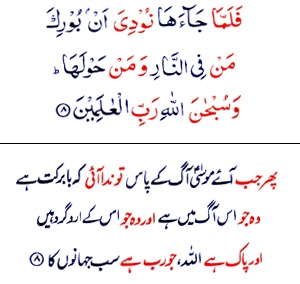 فَلَمَّا جَآءَهَا نُوْدِىَ اَنْۢ بُوْرِكَ
مَنْ فِى النَّارِ وَمَنْ حَوْلَهَا ؕ
وَسُبْحٰنَ اللّٰهِ رَبِّ الْعٰلَمِيْنَ ۸
پھر جب آئے موسیٰؑ آگ کے پاس تو ندا آئی کہ بابرکت ہے
وہ جو اس آگ میں ہے اور وہ جو اس کے ارد گرد ہیں
اور پاک ہے اللہ، جو رب ہے سب جہانوں کا ۸